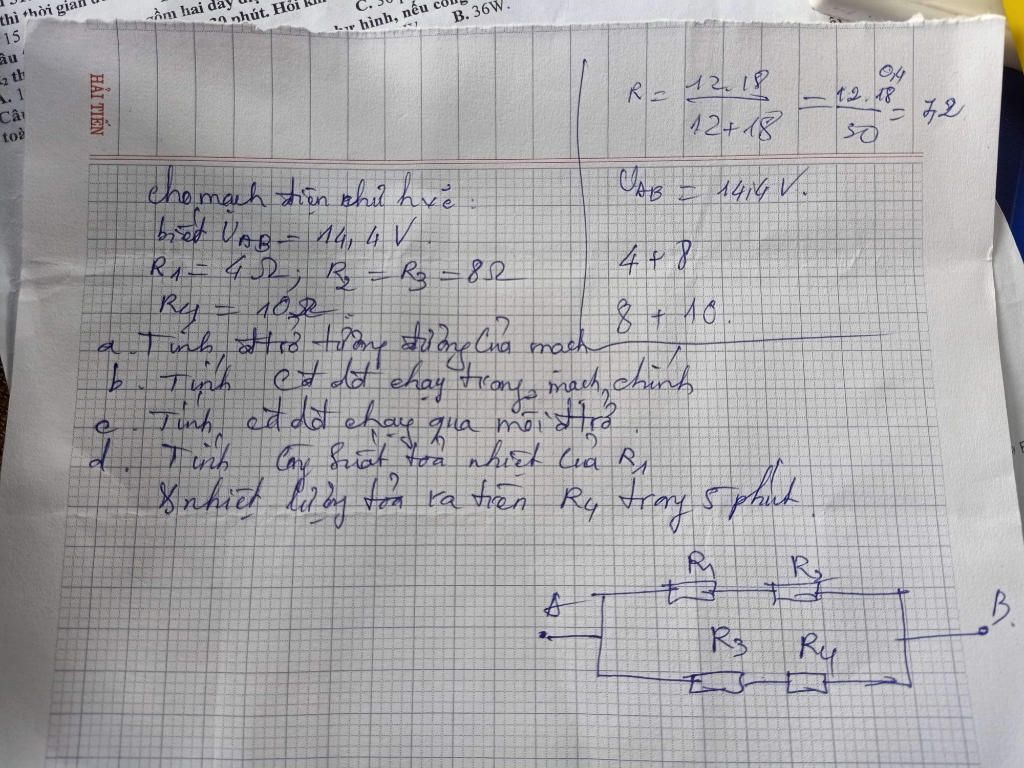 thi thời gian
gồm hai dây
30 phút. Hỏi
C. 30
hình, nếu công
B. 36W.
15
HẢI TIẾN
R = 12.18 / 12+18 = 12.18 / 30 = 7,2
0,4
Cho mạch điện như h vẽ:
biết UAB = 14,4 V.
R1 = 4Ω; R2 = R3 = 8Ω
R4 = 10Ω.
UAB = 14,4 V.
4 + 8
8 + 10.
a. Tính, đtrở tương đương của mạch
b. Tính cđ dđ chạy trong mạch chính
c. Tính, cđ dđ chạy qua mỗi đtrở.
d. Tính Công suất toả nhiệt của R1
& nhiệt lượng tỏa ra trên R4 trong 5 phút.
R1 R2
A B.
R3 R4